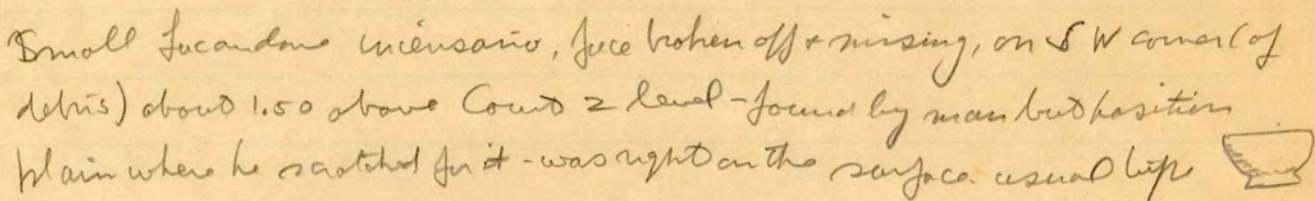 Small Lacandone incensario, face broken off + missing, on SW corner (of
debris) about 1.50 above Court 2 level - found by man but position
plain where he scratched for it - was right on the surface. usual type